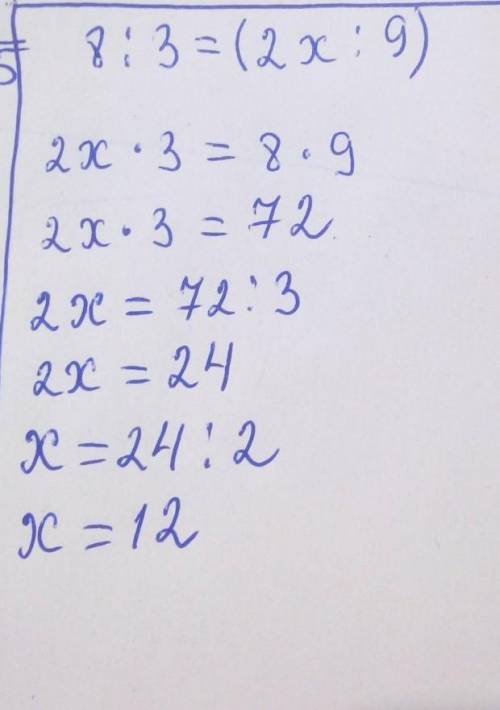 8 : 3 = (2x : 9)
2x · 3 = 8 · 9
2x · 3 = 72
2x = 72 : 3
2x = 24
x = 24 : 2
x = 12